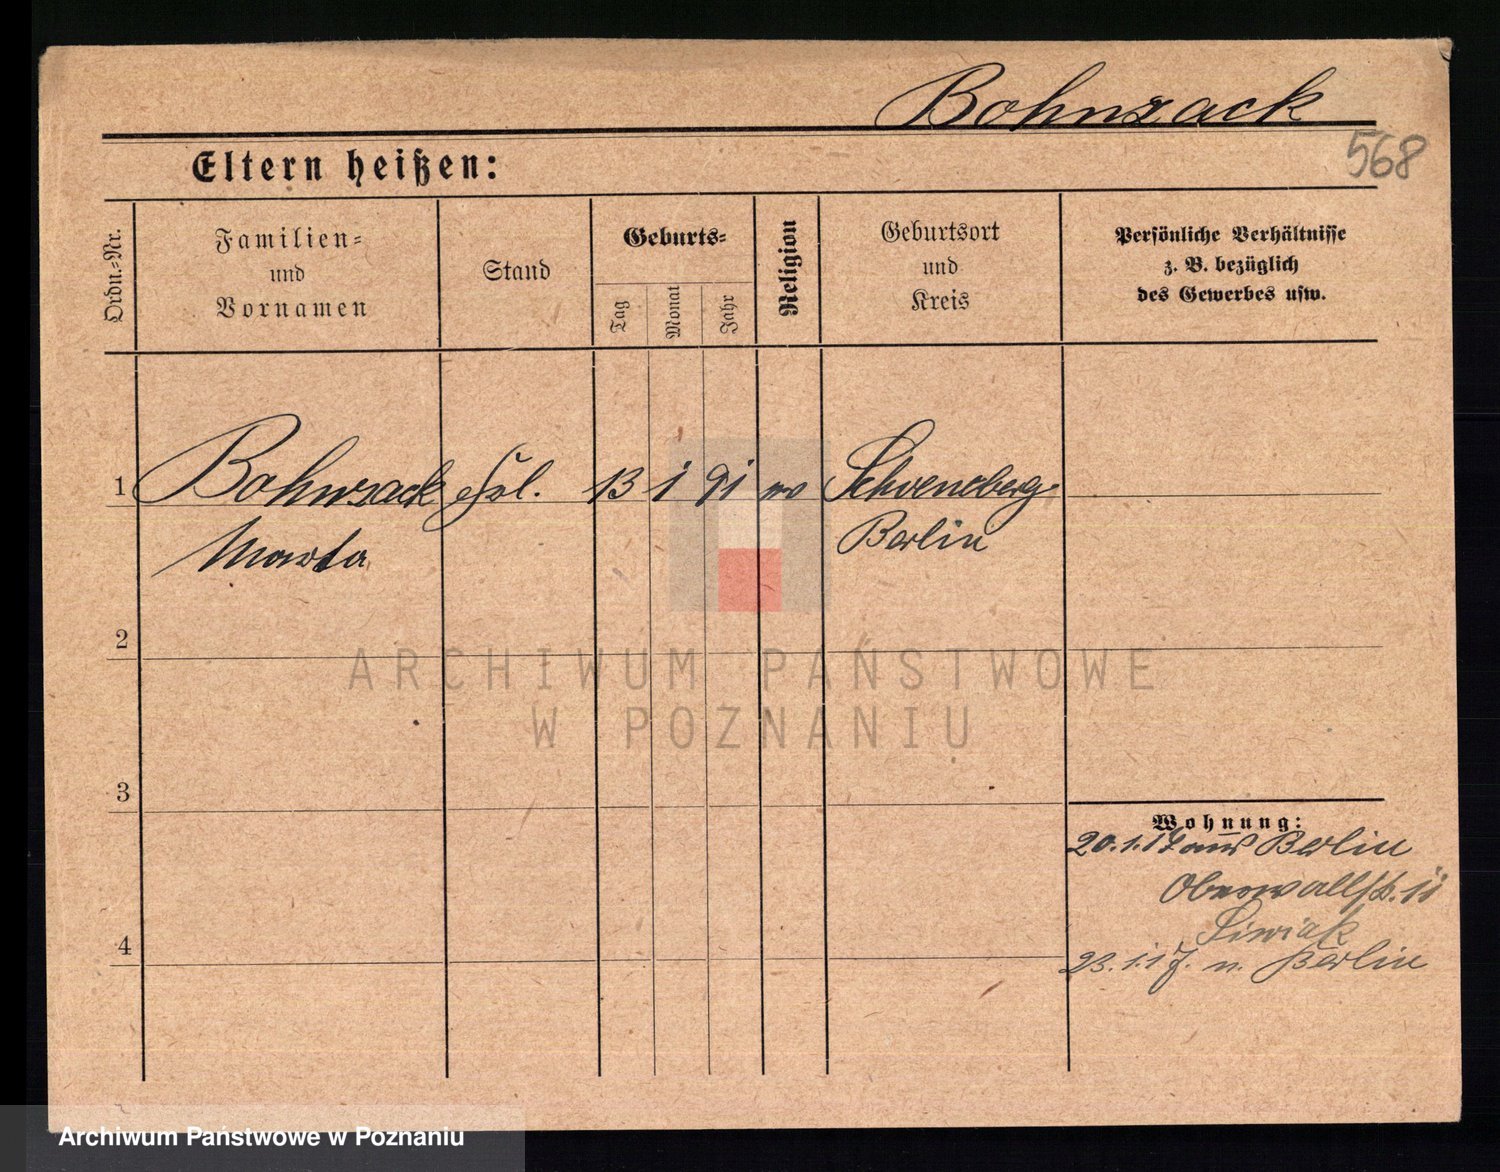 Bohnzack
568
Eltern heißen:
Ordn.-Nr.
Familien-
und
Vornamen
Stand
Geburts-
Tag
Monat
Jahr
Religion
Geburtsort
und
Kreis
Persönliche Verhältnisse
z. B. bezüglich
des Gewerbes usw.
1 Bohnzack Frl. 13 1 91 Schoeneberg
Marta Berlin
2
3
4
Wohnung:
20.1.17 aus Berlin
Oberwallstr. 11
Siwiak
23.1.17. n. Berlin
ARCHIWUM PAŃSTWOWE
W POZNANIU
Archiwum Państwowe w Poznaniu